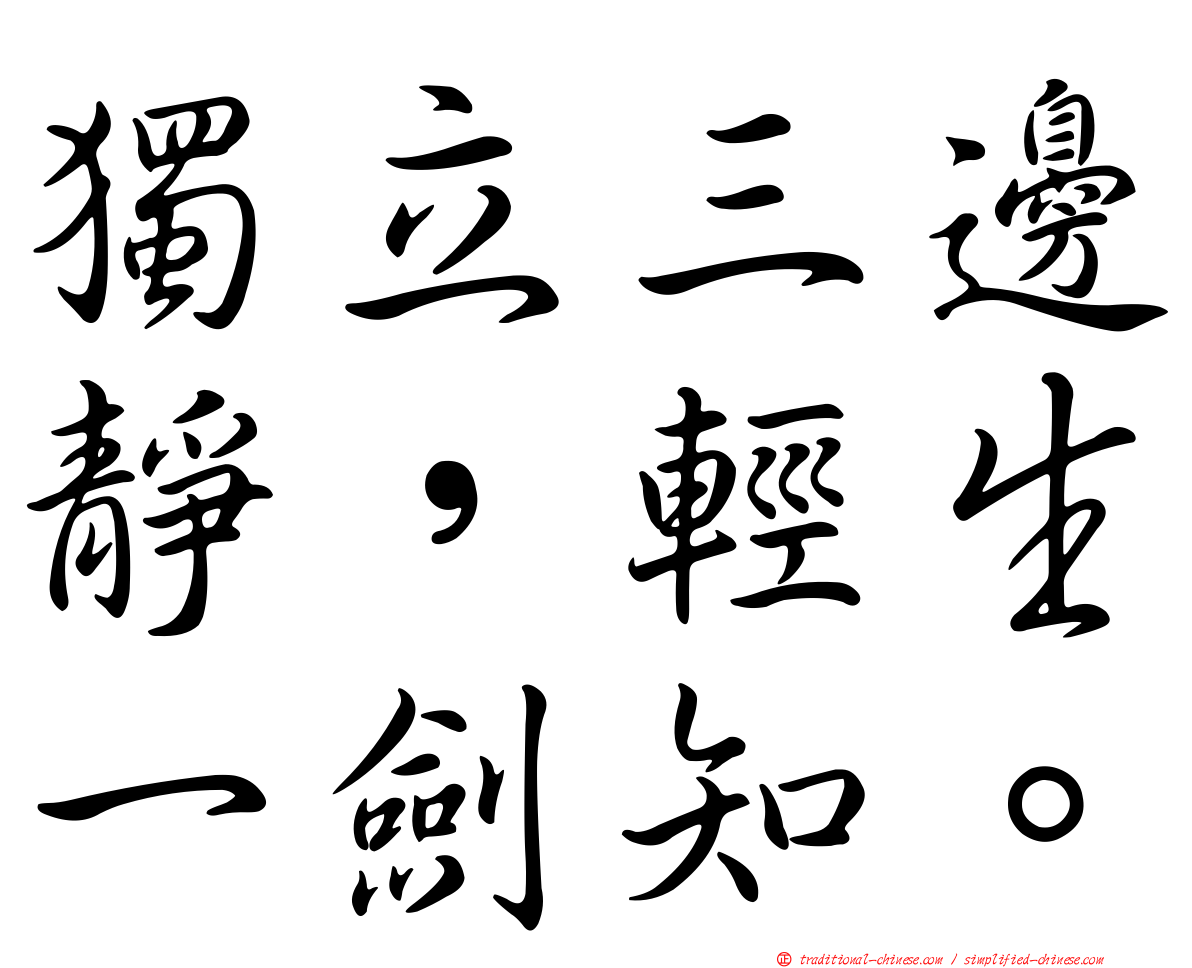 獨立三邊
靜，輕生
一劍知。
㊣ traditional-chinese.com / simplified-chinese.com